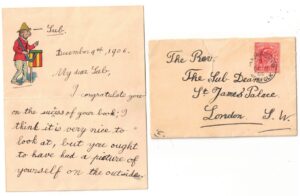 — Sub.
December 9th, 1906.
My dear Sub,
I congratulate you
on the success of your book; I
think it is very nice to
look at, but you ought
to have had a picture of
yourself on the outside
The Rev.
The Sub Dean
St James' Palace
London S.W.